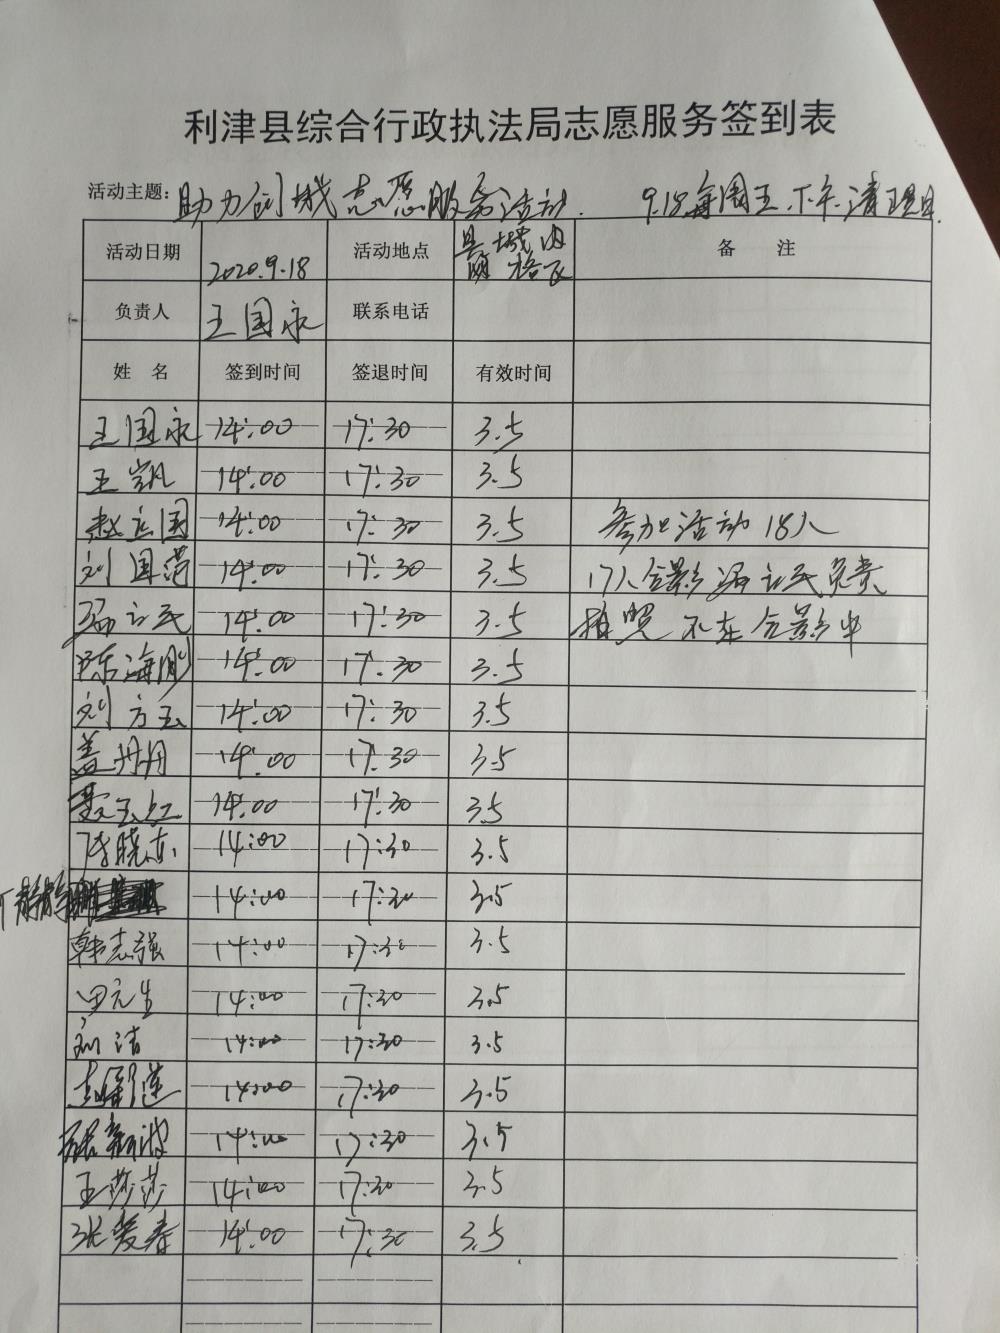 利津县综合行政执法局志愿服务签到表
活动主题: 助力创城志愿服务活动. 9.18每周五下午清理日.
活动日期 2020.9.18 活动地点 县城内网格区 备 注
负责人 王国永 联系电话
姓 名 签到时间 签退时间 有效时间
王国永 14:00 17:30 3.5
王凯 14:00 17:30 3.5
赵立国 14:00 17:30 3.5 参加活动18人
刘国范 14:00 17:30 3.5 17人合影 让民负责
让民 14:00 17:30 3.5 拍照 不在合影中
陈海彤 14:00 17:30 3.5
刘方玉 14:00 17:30 3.5
盖丹丹 14:00 17:30 3.5
玉红 14:00 17:30 3.5
陈晓东 14:00 17:30 3.5
静静 14:00 17:30 3.5
韩志强 14:00 17:30 3.5
田元生 14:00 17:30 3.5
刘洁 14:00 17:30 3.5
莲 14:00 17:30 3.5
张新波 14:00 17:30 3.5
王莎莎 14:00 17:30 3.5
张爱春 14:00 17:30 3.5